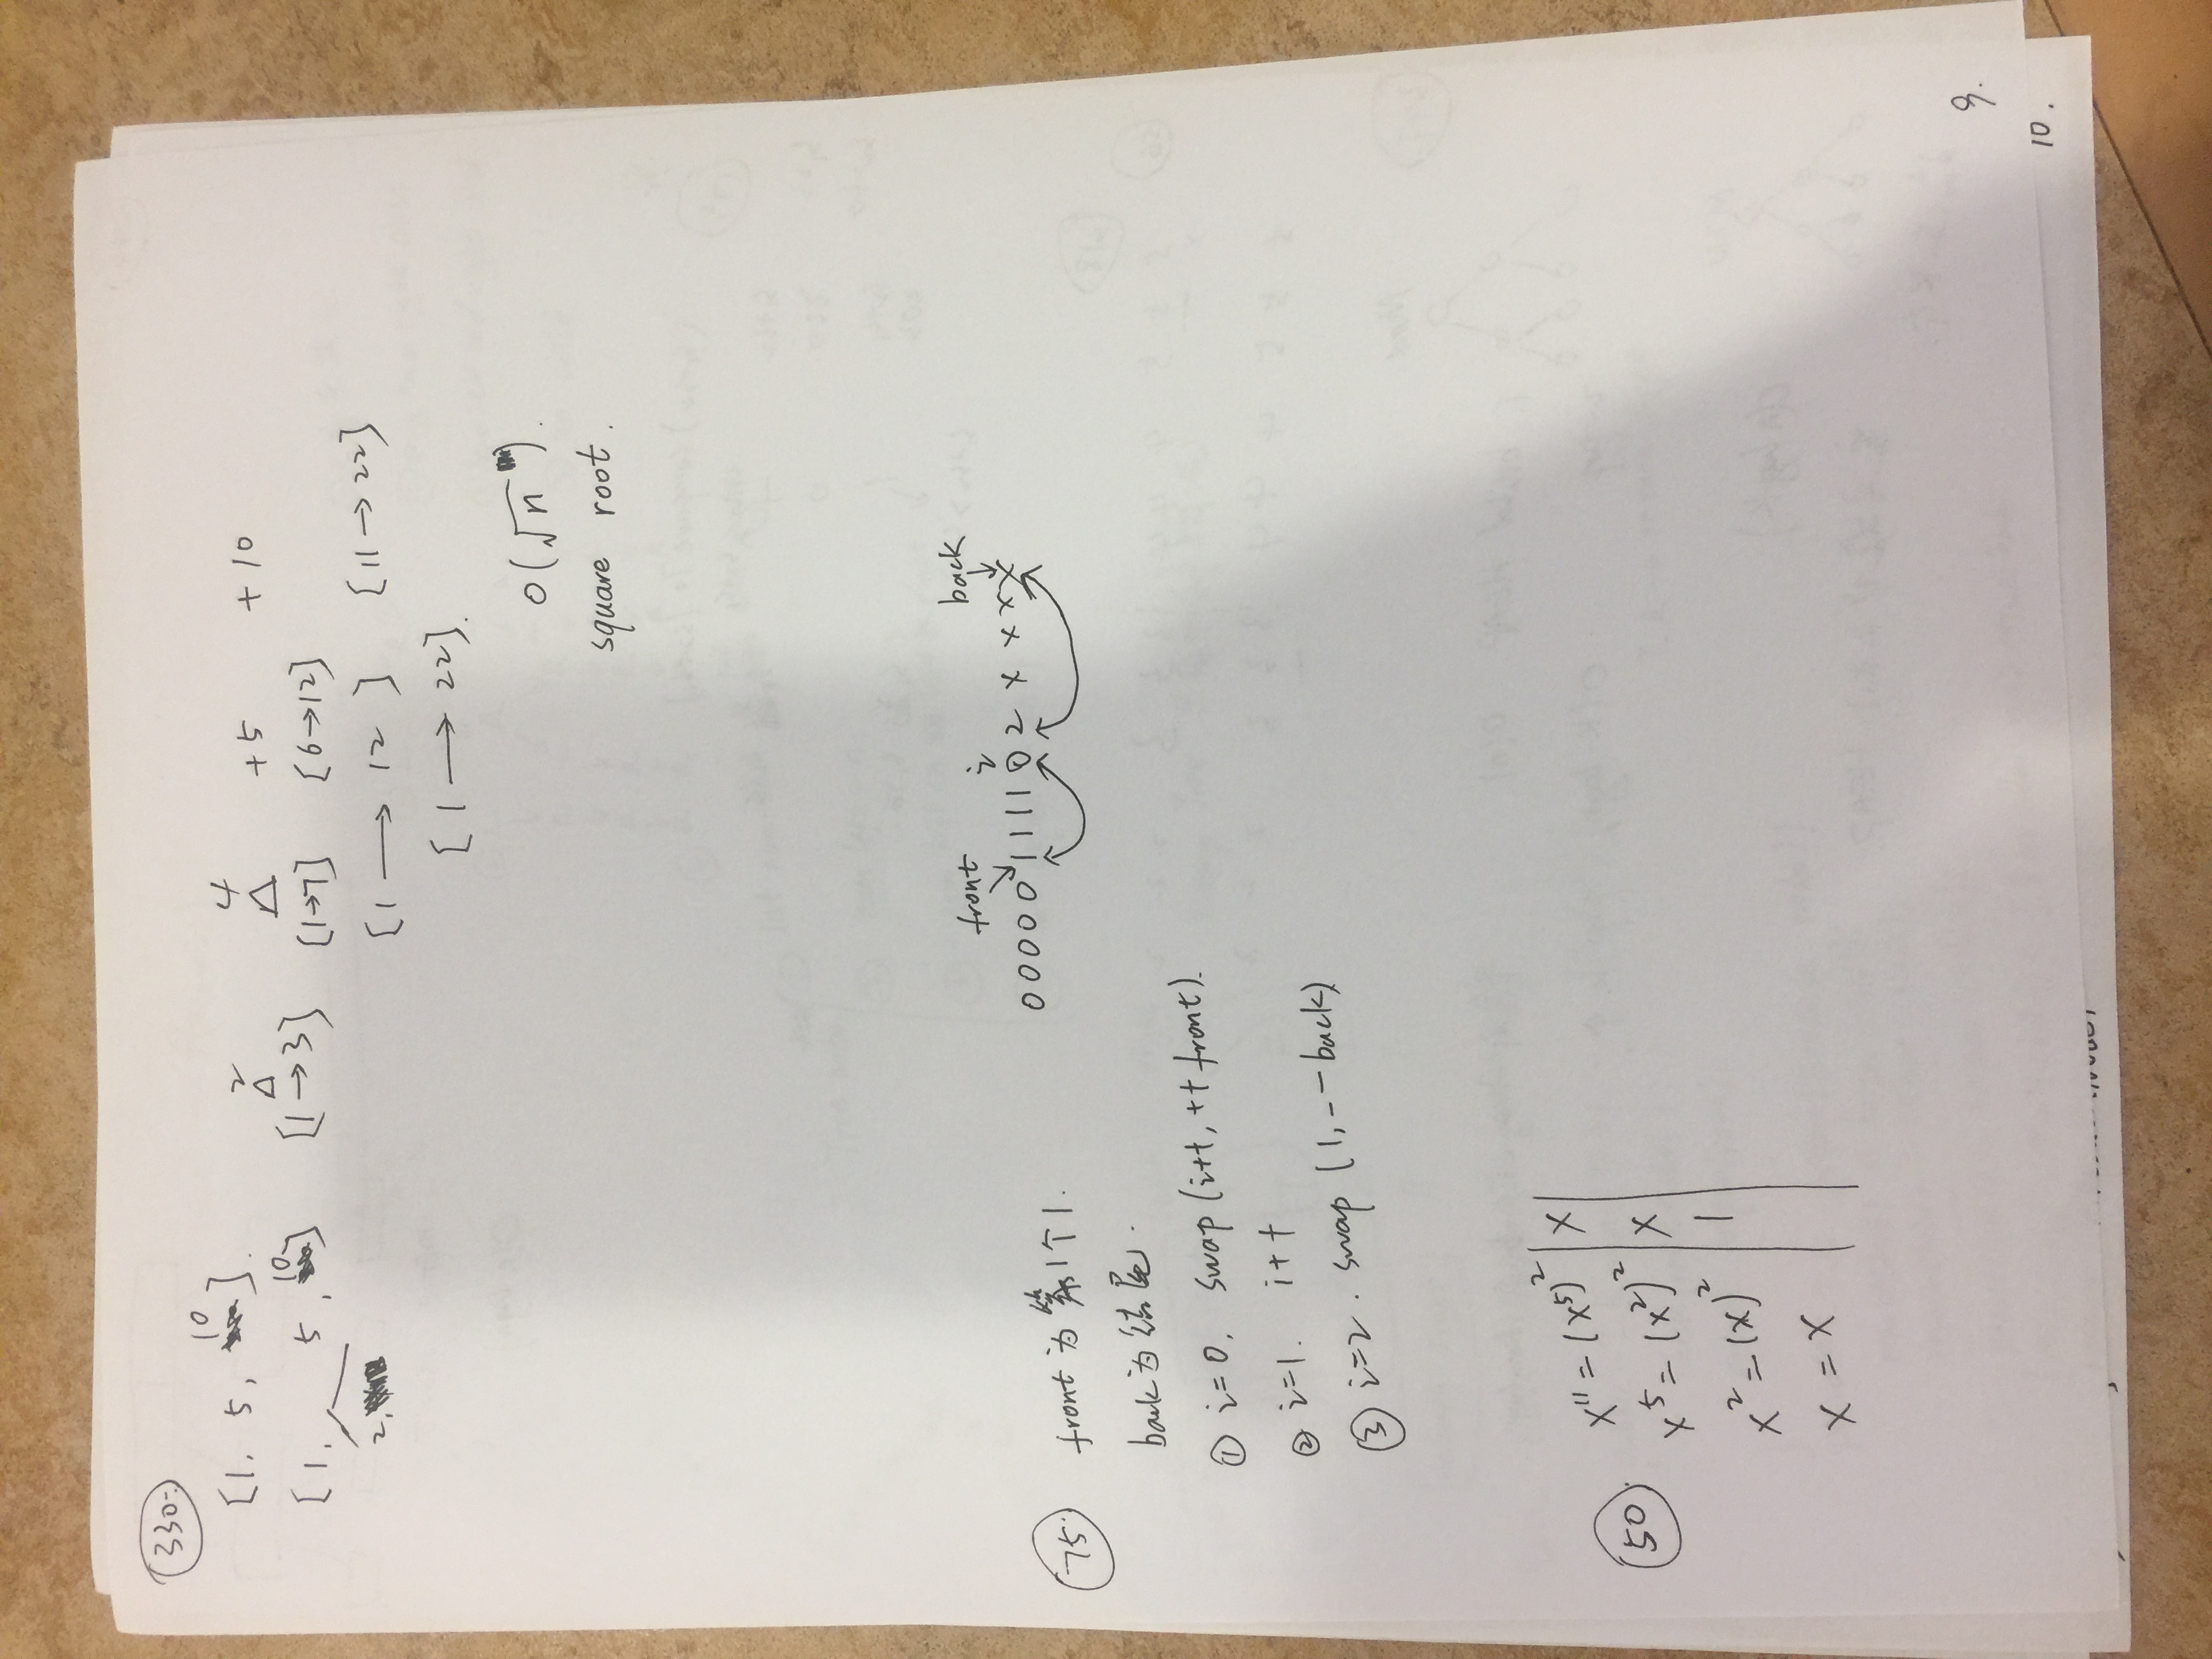 330.
10
[1, 5, ].
2 4 +5 +10
△ △
[1, 5, 10] [1→3] [1→7] [6→12]
2,
[1 → 12 ] [11→22]
[1 → 22].
O(√n).
square root.
front i back
0 0 0 0 0 1 1 1 1 0 2 x x x x
75. front为第1个1.
back为结尾.
① i=0. swap(i++, ++front).
② i=1. i++
③ i=2. swap(1, --back)
50. x¹¹=(x⁵)² | x |
x⁵=(x²)² | x |
x²=(x)² | 1 |
x = x
9.
10.